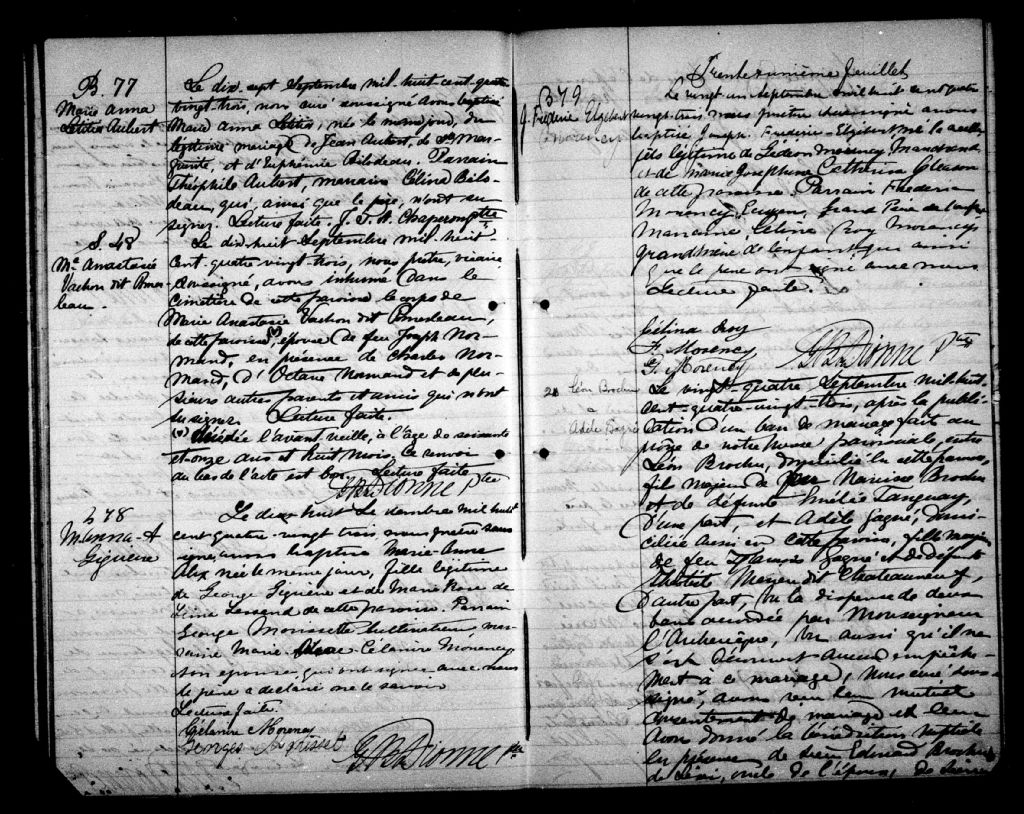 B. 77
Marie Anna
Letitia Aubert
Le dix-sept Septembre mil-huit-cent-quatre
vingt-trois, nous curé soussigné avons baptisé
Marie Anna Letitia, née le même jour, du
légitime mariage de Jean Aubert, de Ste Mar-
guerite, et d'Euphémie Bilodeau. Parrain
Théophile Aubert, marraine Célina Bilo-
deau, qui, ainsi que le père, n'ont su
signer. Lecture faite. J. T. N. Chaperon Ptre
S. 48
Me Anastasie
Vachon dit Pomer-
leau.
Le dix-huit Septembre mil-huit-
cent-quatre vingt-trois, nous prêtre, vicaire
soussigné, avons inhumé dans le
cimetière de cette paroisse le corps de
Marie Anastasie Vachon dit Pomerleau,
de cette paroisse, épouse de feu Joseph Nor-
mand, en présence de Charles Nor-
mand, d'Octave Normand et de plu-
sieurs autres parents et amis qui n'ont
su signer. Lecture faite.
décédée l'avant veille, à l'âge de soixante
et-onze ans et huit mois, ce renvoi
au bas de l'acte est bon. Lecture faite
Dionne Ptre
78
M. Anna-A
Giguère
Le dix huit Septembre mil huit
cent quatre-vingt trois, nous prêtre sous-
signé, avons baptisé Marie-Anna
née le même jour, fille légitime
de George Giguère et de Marie Rose de
Lima Lessard de cette paroisse. Parrain
George Morissette cultivateur, mar-
raine Marie Célanire Morency
son épouse, qui ont signé avec nous
le père a déclaré ne le savoir
Lecture faite.
Célanire Morency
Georges Morisset
Dionne Ptre
Trente-unième feuillet
B 79
J. Frédéric Elzébert
Morency
Le vingt un septembre mil huit cent quatre
vingt-trois nous prêtre soussigné avons
baptisé Joseph Frédéric-Elzébert né la veille
fils légitime de Gédéon Morency Marchand
et de Marie Josephine Catherine Gleason
de cette paroisse. Parrain Frédéric
Morency, Grand Père de l'enfant
Marraine Célina Roy Morency
grand'mère de l'enfant qui ainsi
que le père ont signé avec nous
Lecture faite.
Célina Roy
F. Morency
G. Morency
Dionne Ptre
Léon Brochu
&
Adèle Gagné
Le vingt-quatre Septembre mil-huit-
cent-quatre-vingt-trois, après la publi-
cation d'un ban de mariage fait au
prône de notre messe paroissiale, entre
Léon Brochu, domicilié en cette paroisse,
fils majeur de feu Narcisse Brochu
et de défunte Emélie Tanguay,
d'une part, et Adèle Gagné, domi-
ciliée aussi en cette paroisse, fille majeure
de feu François Gagné et de défunte
Mathilde dit Chateauneuf,
d'autre part, vu la dispense de deux
bans accordée par Monseigneur
l'Archevêque, vu aussi qu'il ne
s'est découvert aucun empêche-
ment à ce mariage, nous curé sous-
signé, avons reçu leur mutuel
consentement de mariage et leur
avons donné la bénédiction nuptiale
en présence de sieur Edouard Brochu
de Lévi, oncle de l'époux, de sieur